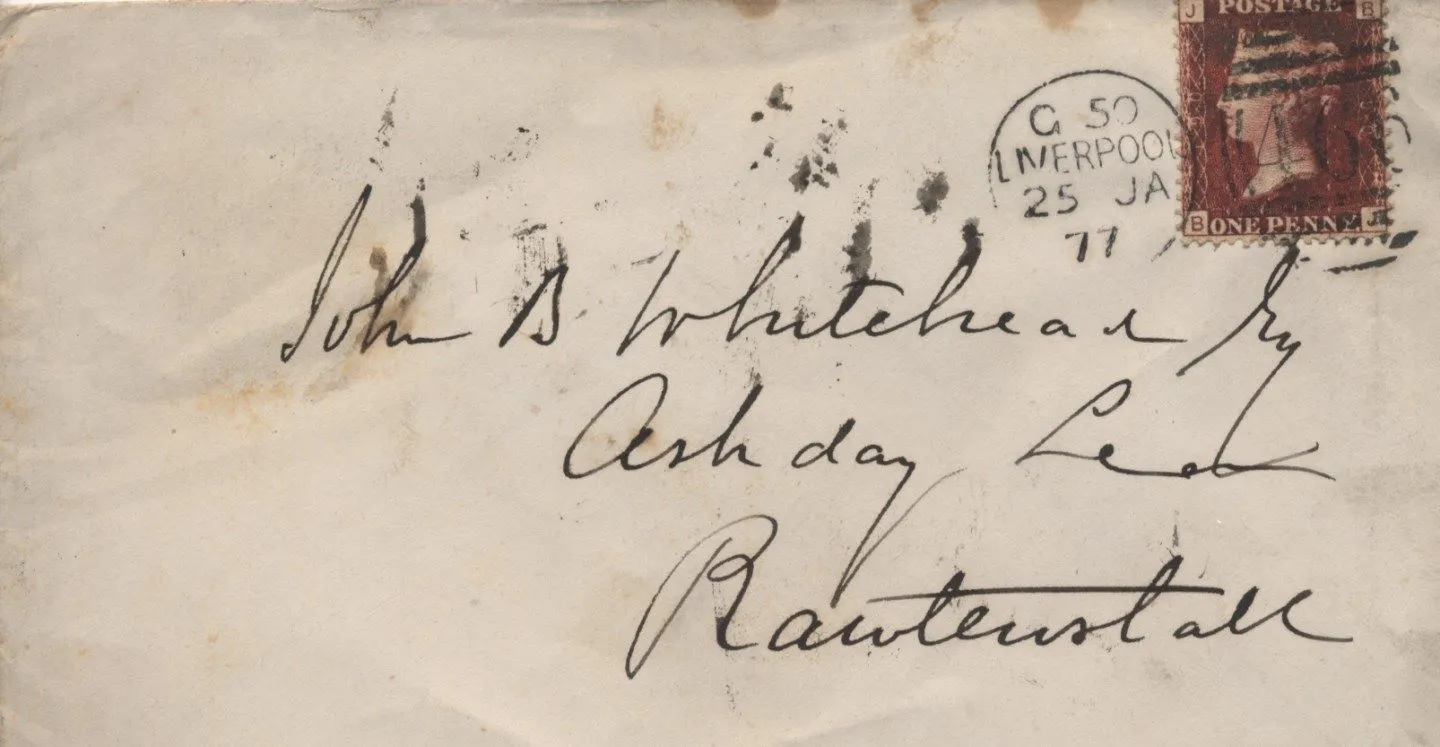 J POSTAGE B
G 50
LIVERPOOL
25 JA
77
466
B ONE PENNY J
John B Whitehead Esq
Ashday Lea
Rawtenstall